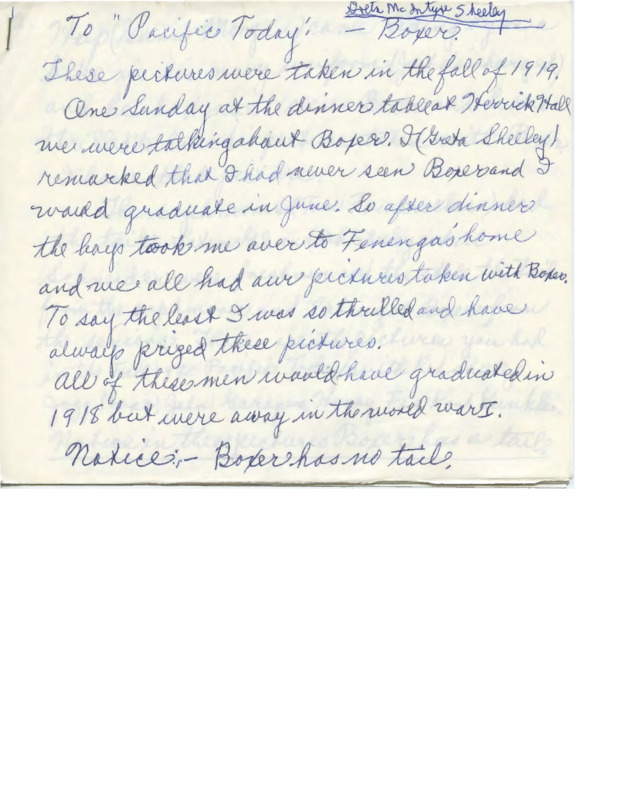 Greta McIntyre Sheeley
To "Pacific Today". – Boxer.
These pictures were taken in the fall of 1919.
One Sunday at the dinner table at Herrick Hall
we were talking about Boxer. I (Greta Sheeley)
remarked that I had never seen Boxer and I
would graduate in June. So after dinner
the boys took me over to Fenenga's home
and we all had our pictures taken with Boxer.
To say the least I was so thrilled and have
always prized these pictures.
All of these men would have graduated in
1918 but were away in the world war I.
Notice:– Boxer has no tail.